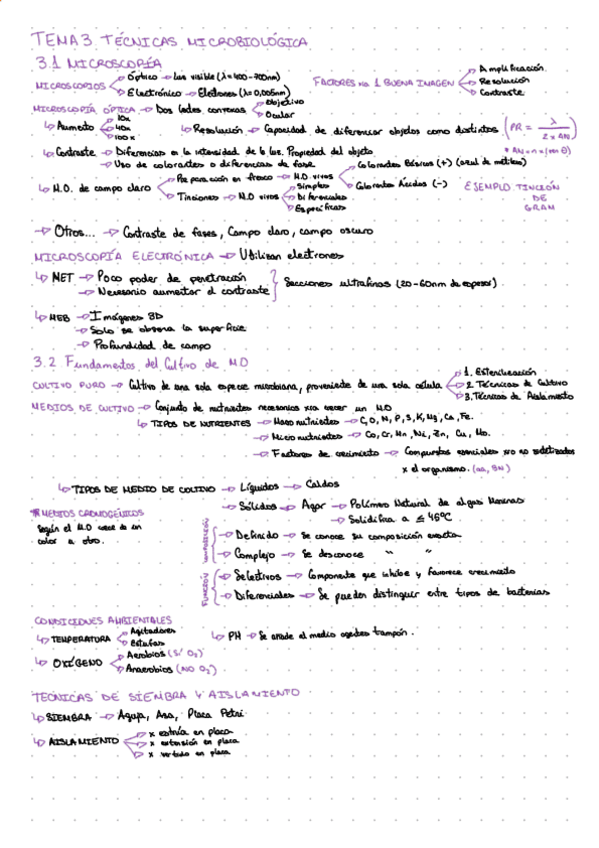 TEMA 3 TÉCNICAS MICROBIOLÓGICA
3.1 MICROSCOPÍA
MICROSCOPIOS → Óptico → Luz visible (λ=400-700nm)
→ Electrónico → Electrones (λ=0,005nm)
FACTORES xa 1 BUENA IMAGEN → Amplificación
→ Resolución
→ Contraste
MICROSCOPÍA ÓPTICA → Dos lentes convexas → Objetivo
→ Ocular
↳ Aumento → 10x
→ 40x
→ 100x
↳ Resolución → Capacidad de diferenciar objetos como distintos (PR = λ / 2 x AN)
↳ Contraste → Diferencias en la intensidad de la luz. Propiedad del objeto
→ Uso de colorantes o diferencias de fase.
↳ M.O. de campo claro → Preparación en fresco → M.O vivos
→ Tinciones → M.O vivos → Simples
→ Diferenciales
→ Específicas
→ Colorantes Básicos (+) (azul de metileno)
→ Colorantes Ácidos (-)
EJEMPLO TINCIÓN
DE
GRAM
→ Otros... → Contraste de fases, Campo claro, campo oscuro
MICROSCOPÍA ELECTRÓNICA → Utilizan electrones
↳ MET → Poco poder de penetración
→ Necesario aumentar el contraste
Secciones ultrafinas (20-60nm de espesor).
↳ MEB → Imágenes 3D
→ Solo se observa la superficie
→ Profundidad de campo
3.2 Fundamentos del Cultivo de MO
CULTIVO PURO → Cultivo de una sola especie microbiana, proveniente de una sola célula → 1. Esterilización
→ 2. Técnicas de Cultivo
→ 3. Técnicas de Aislamiento
MEDIOS DE CULTIVO → Conjunto de nutrientes necesarios xra crecer un MO
↳ TIPOS DE NUTRIENTES → Macronutrientes → C, O, N, P, S, K, Mg, Ca, Fe.
→ Micronutrientes → Co, Cr, Mn, Ni, Zn, Cu, Mo.
→ Factores de crecimiento → Compuestos esenciales xro no sintetizados
x el organismo. (aa, BN)
↳ TIPOS DE MEDIO DE CULTIVO → Líquidos → Caldos
→ Sólidos → Agar → Polímero Natural de algas Marinas
→ Solidifica a ≤ 45ºC
* MEDIOS CROMOGÉNICOS
Según el M.O crece de un
color a otro.
COMPOSICIÓN
→ Definido → Se conoce su composición exacta
→ Complejo → Se desconoce " "
FUNCIÓN
→ Selectivos → Componente que inhibe y favorece crecimiento
→ Diferenciales → Se pueden distinguir entre tipos de bacterias
CONDICIONES AMBIENTALES
↳ TEMPERATURA → Agitadores
→ Estufas
↳ PH → Se añade al medio agentes tampón.
↳ OXÍGENO → Aerobios (Sí O₂)
→ Anaerobios (NO O₂)
TECNICAS DE SIEMBRA Y AISLAMIENTO
↳ SIEMBRA → Aguja, Asa, Placa Petri
↳ AISLAMIENTO → x estría en placa
→ x extensión en placa
→ x vertido en placa